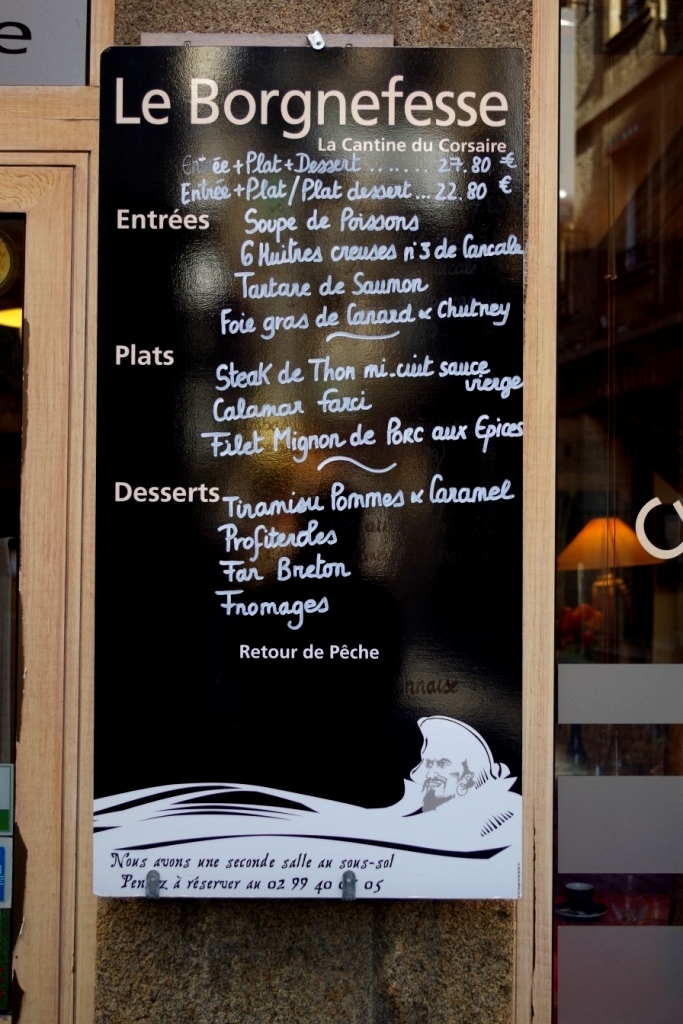 e
Le Borgnefesse
La Cantine du Corsaire
Entrée+Plat+Dessert ....... 27.80 €
Entrée+Plat/Plat dessert ... 22.80 €
Entrées
Soupe de Poissons
6 Huitres creuses n°3 de Cancale
Tartare de Saumon
Foie gras de Canard & Chutney
Plats
Steak de Thon mi-cuit sauce
vierge
Calamar farci
Filet Mignon de Porc aux Epices
Desserts
Tiramisu Pommes & Caramel
Profiteroles
Far Breton
Fromages
Retour de Pêche
Nous avons une seconde salle au sous-sol
Pensez à réserver au 02 99 40 05